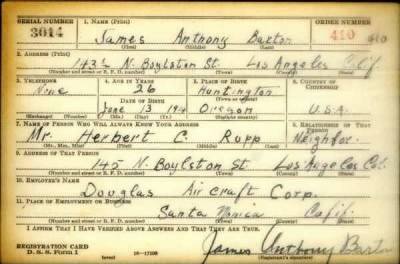 SERIAL NUMBER 1. NAME (Print) ORDER NUMBER
3014 James Anthony Barton 410 410
(First) (Middle) (Last)
2. ADDRESS (Print)
143½ N. Boylston St. Los Angeles Calif.
(Number and street or R. F. D. number) (Town) (County) (State)
3. TELEPHONE 4. AGE IN YEARS 5. PLACE OF BIRTH 6. COUNTRY OF CITIZENSHIP
None 26 Huntington
DATE OF BIRTH (Town or county)
June 13 1914 Oregon U.S.A.
(Exchange) (Number) (Mo.) (Day) (Yr.) (State or country)
7. NAME OF PERSON WHO WILL ALWAYS KNOW YOUR ADDRESS 8. RELATIONSHIP OF THAT PERSON
Mr. Herbert C. Rupp Neighbor
(Mr., Mrs., Miss) (First) (Middle) (Last)
9. ADDRESS OF THAT PERSON
145 N. Boylston St Los Angeles Cal.
(Number and street or R. F. D. number) (Town) (County) (State)
10. EMPLOYER'S NAME
Douglas Aircraft Corp.
11. PLACE OF EMPLOYMENT OR BUSINESS
Santa Monica Calif.
(Number and street or R. F. D. number) (Town) (County) (State)
I AFFIRM THAT I HAVE VERIFIED ABOVE ANSWERS AND THAT THEY ARE TRUE.
REGISTRATION CARD
D. S. S. FORM 1 16—17105 James Anthony Barton
(Registrant's signature)